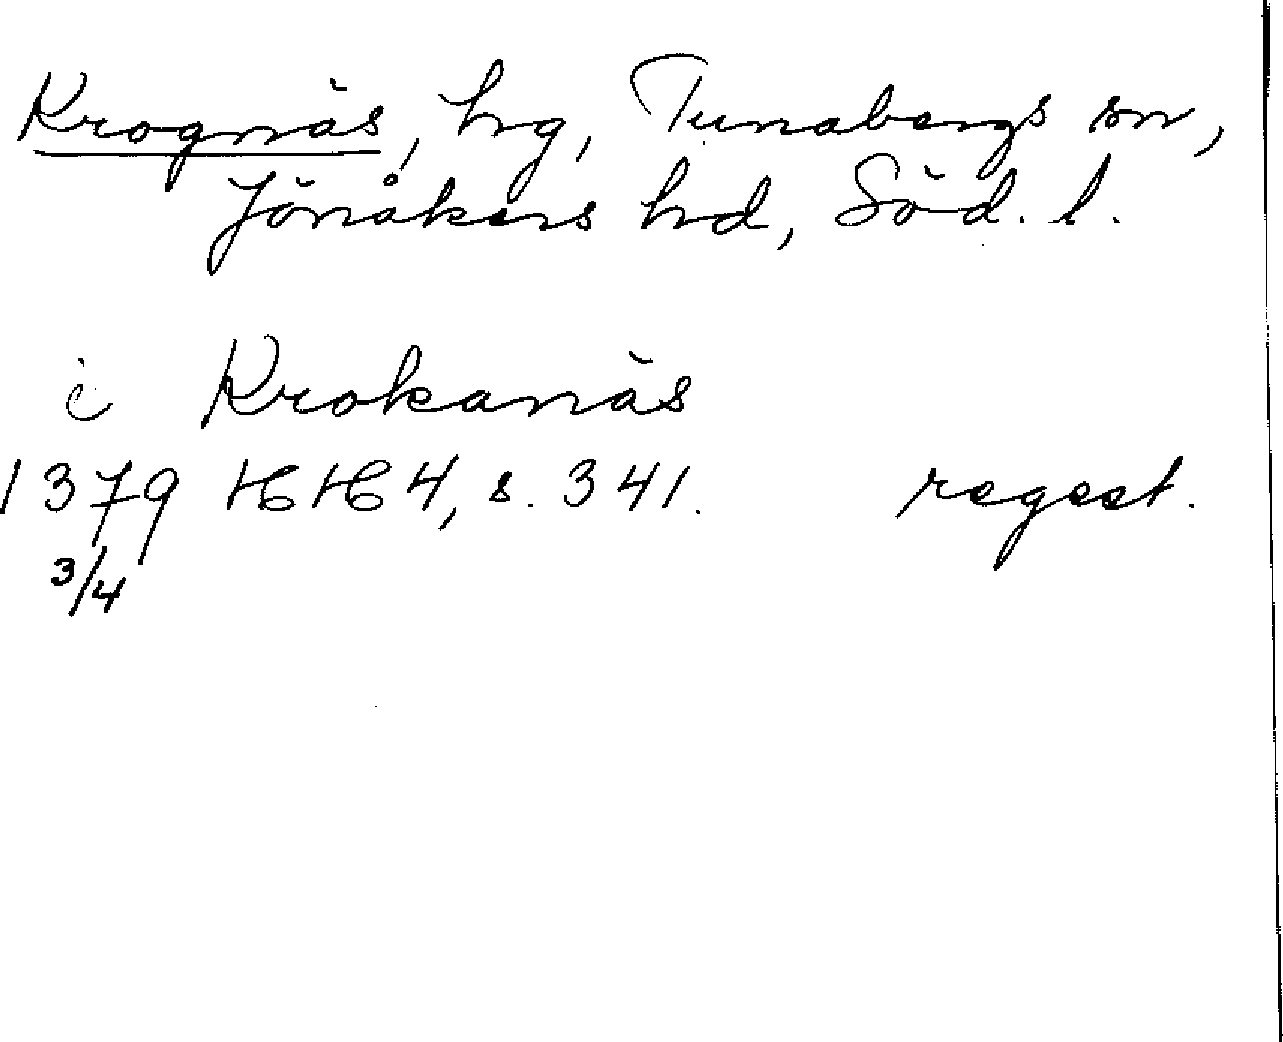 Krognäs, hg, Tunabergs sn,
Jönåkers hd, Söd. l.
i Krokanäs
1379 HH 4, s. 341. regest.
3/4